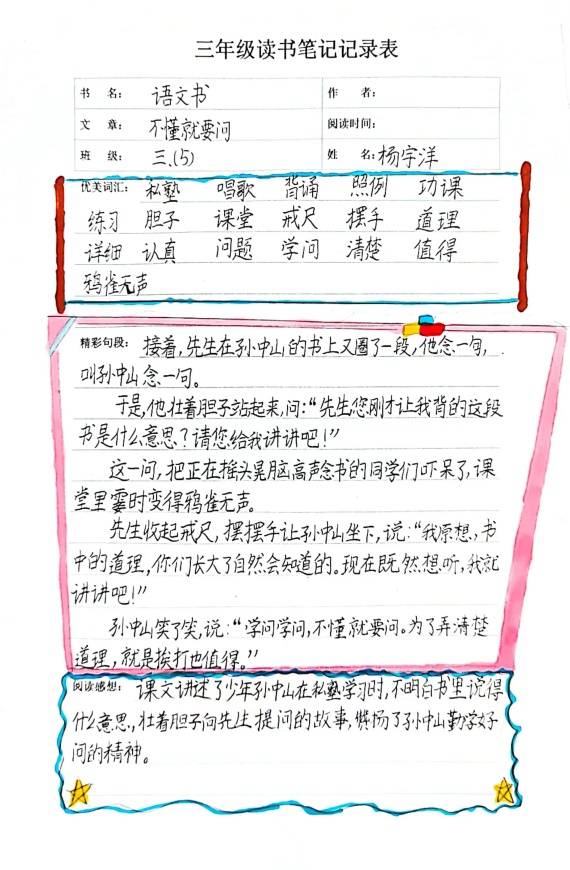 三年级读书笔记记录表
书 名: 语文书 作 者:
文 章: 不懂就要问 阅读时间:
班 级: 三.(5) 姓 名: 杨宇洋
优美词汇: 私塾 唱歌 背诵 照例 功课
练习 胆子 课堂 戒尺 摆手 道理
详细 认真 问题 学问 清楚 值得
鸦雀无声
精彩句段: 接着,先生在孙中山的书上又圈了一段,他念一句,
叫孙中山念一句。
于是,他壮着胆子站起来,问:“先生,您刚才让我背的这段
书是什么意思?请您给我讲讲吧!”
这一问,把正在摇头晃脑高声念书的同学们吓呆了,课
堂里霎时变得鸦雀无声。
先生收起戒尺,摆摆手让孙中山坐下,说:“我原想,书
中的道理,你们长大了自然会知道的。现在既然想听,我就
讲讲吧!”
孙中山笑了笑,说:“学问学问,不懂就要问。为了弄清楚
道理,就是挨打也值得。”
阅读感想: 课文讲述了少年孙中山在私塾学习时,不明白书里说得
什么意思,壮着胆子向先生提问的故事,赞扬了孙中山勤学好
问的精神。